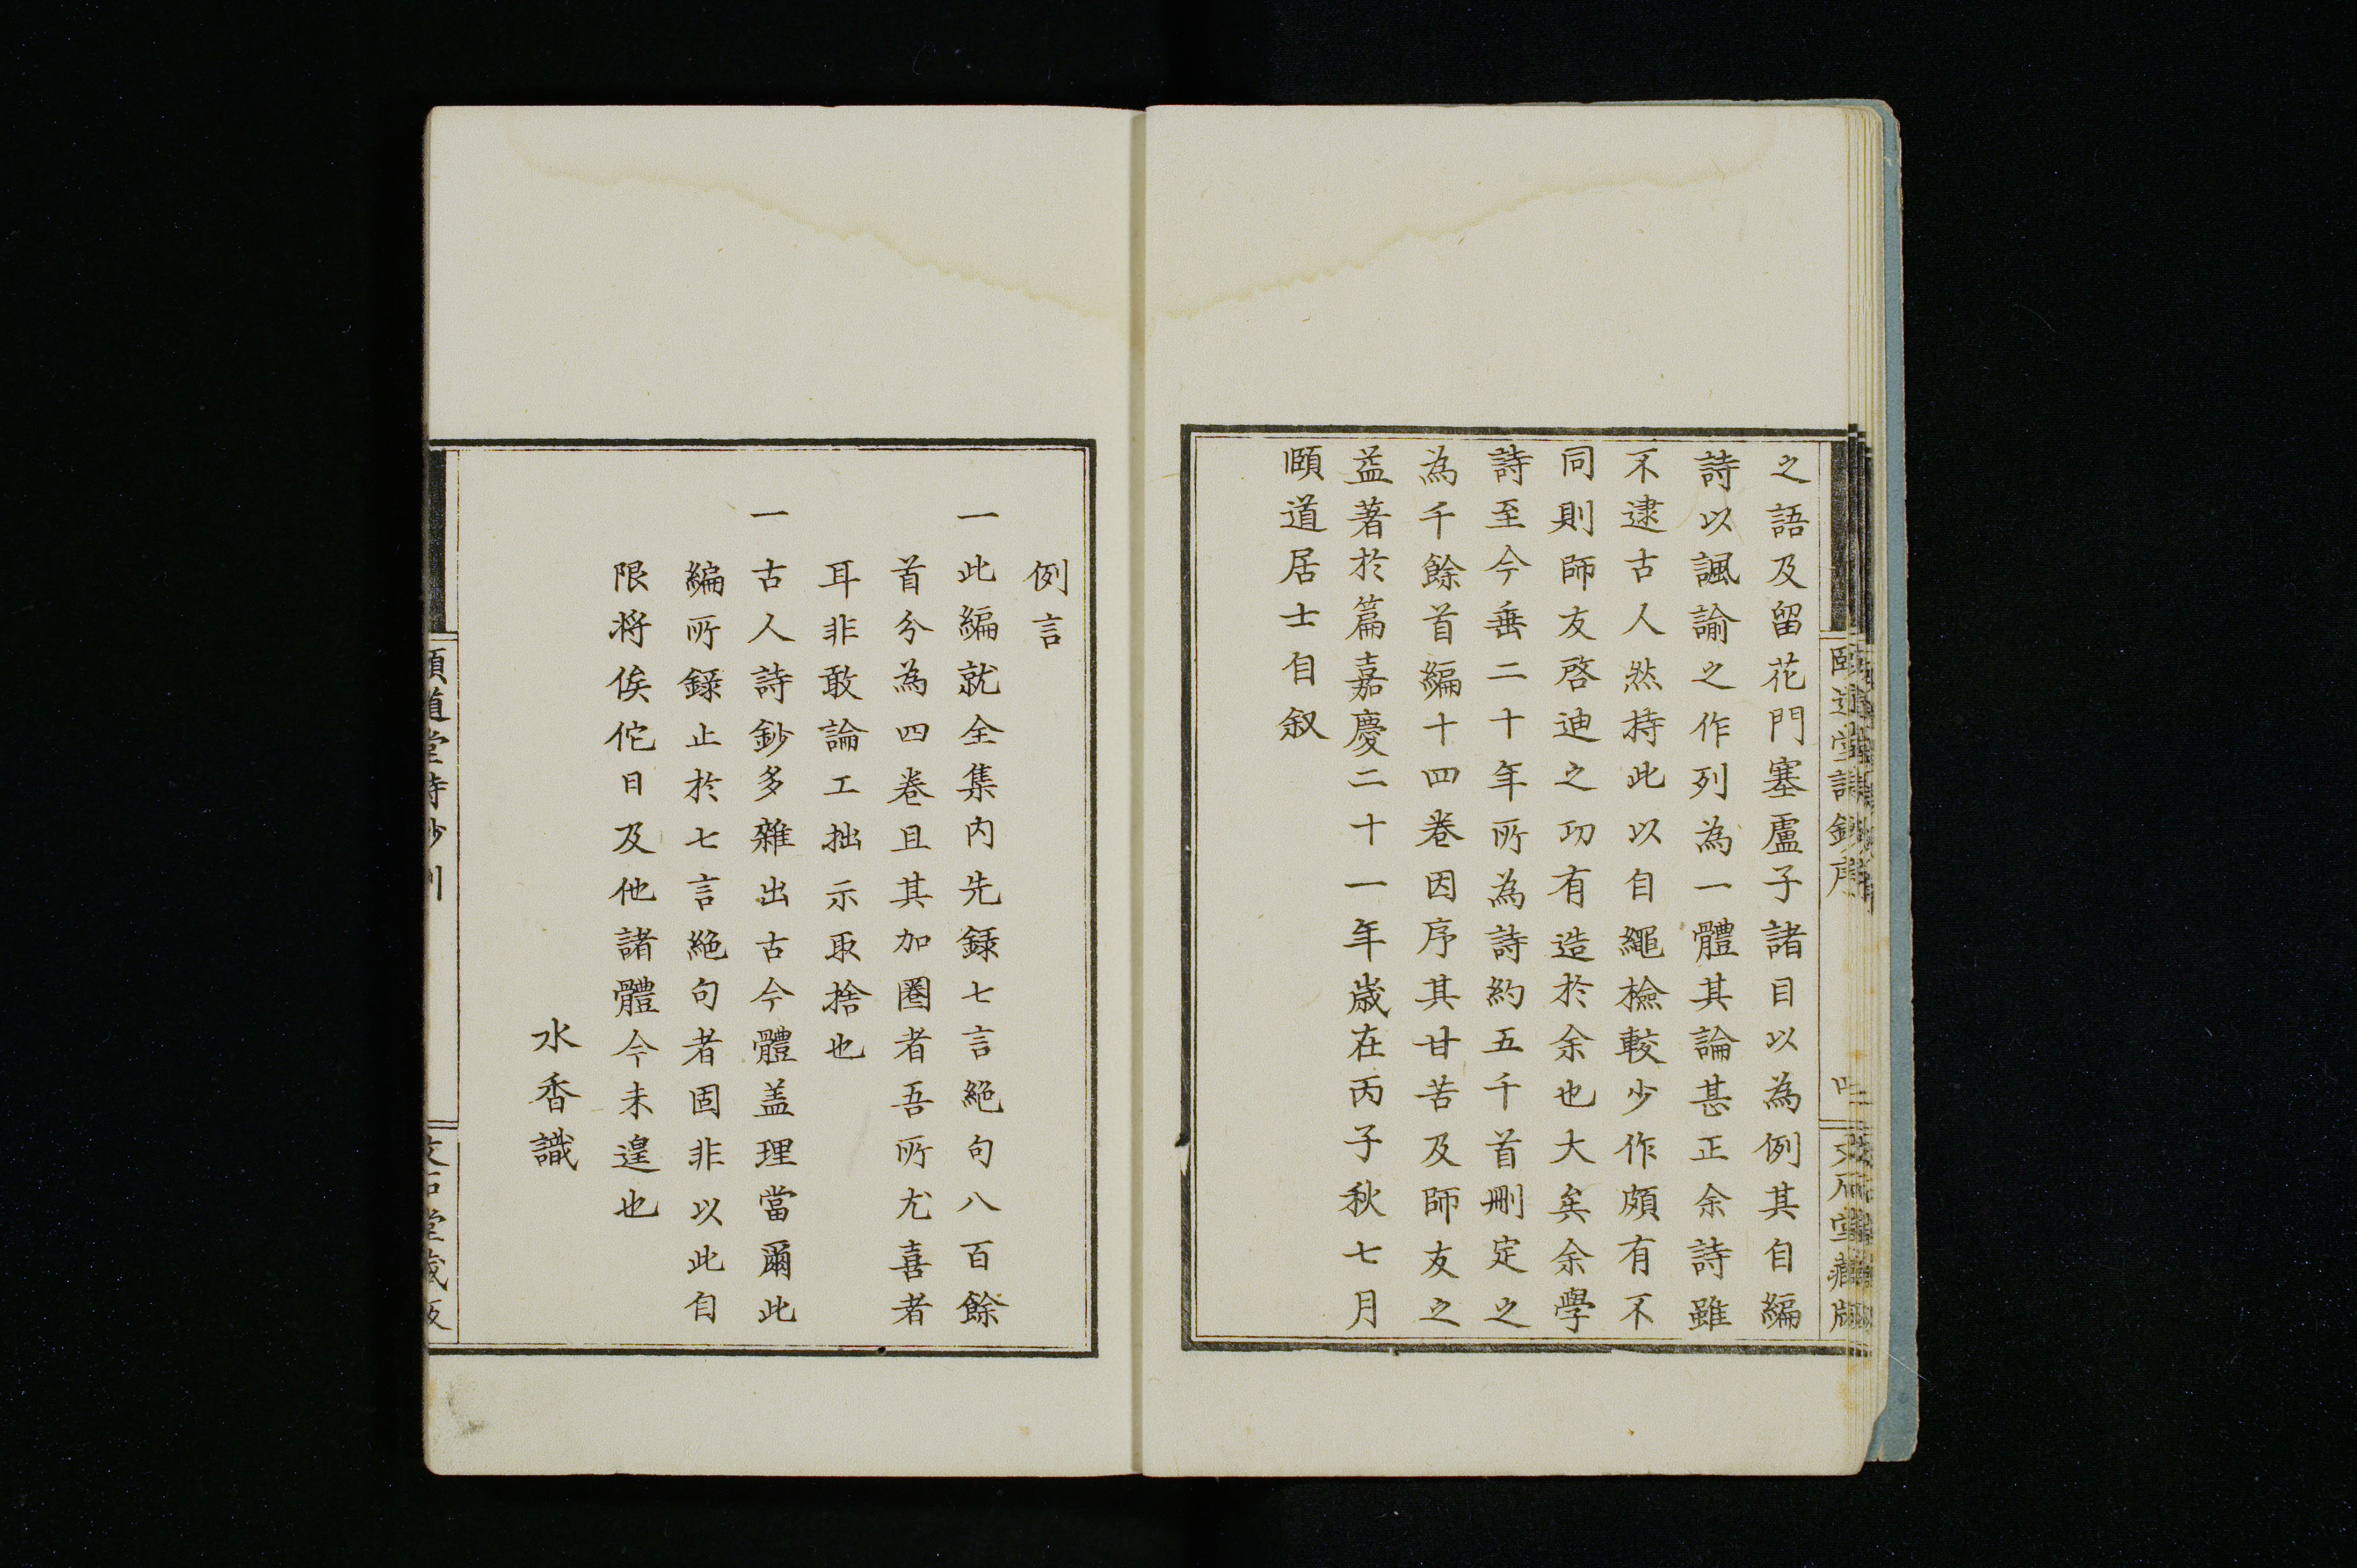 之語及留花門塞盧子諸目以為例其自編
詩以諷諭之作列為一體其論甚正余詩雖
不逮古人然持此以自繩檢較少作頗有不
同則師友啓迪之功有造於余也大矣余學
詩至今垂二十年所為詩約五千首刪定之
為千餘首編十四卷因序其甘苦及師友之
益著於篇嘉慶二十一年歲在丙子秋七月
頤道居士自叙
例言
一此編就全集内先録七言絶句八百餘
首分為四卷且其加圈者吾所尤喜者
耳非敢論工拙示取捨也
一古人詩鈔多雜出古今體盖理當爾此
編所録止於七言絶句者固非以此自
限将俟佗日及他諸體今未遑也
水香識
頤道堂詩鈔
文石堂藏版